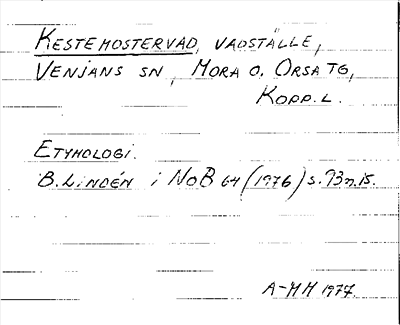 KESTEMOSTERVAD, VADSTÄLLE,
VENJANS SN, MORA O. ORSA TG,
KOPP. L.
ETYMOLOGI.
B. LINDÉN i NoB 64 (1976) s. 93 n. 15.
A-MH 1977.